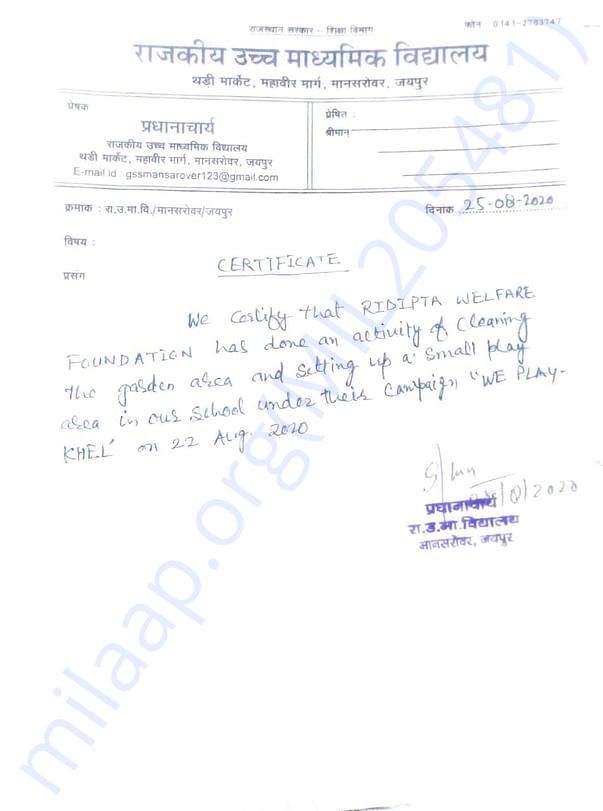 राजस्थान सरकार - शिक्षा विभाग
फोन 0141-2783747
राजकीय उच्च माध्यमिक विद्यालय
थडी मार्केट, महावीर मार्ग, मानसरोवर, जयपुर
प्रेषक
प्रधानाचार्य
राजकीय उच्च माध्यमिक विद्यालय
थडी मार्केट, महावीर मार्ग, मानसरोवर, जयपुर
E-mail id : gssmansarover123@gmail.com
प्रेषित :
श्रीमान
क्रमांक : रा.उ.मा.वि./मानसरोवर/जयपुर
दिनांक 25-08-2020
विषय :
CERTIFICATE
प्रसंग
We Certify that RIDIPTA WELFARE
FOUNDATION has done an activity of Cleaning
the garden area and setting up a small play
area in our school under their Campaign "WE PLAY-
KHEL" on 22 Aug, 2020
2020
प्रधानाचार्य
रा.उ.मा.विद्यालय
मानसरोवर, जयपुर
milaap.org(MIL205481)